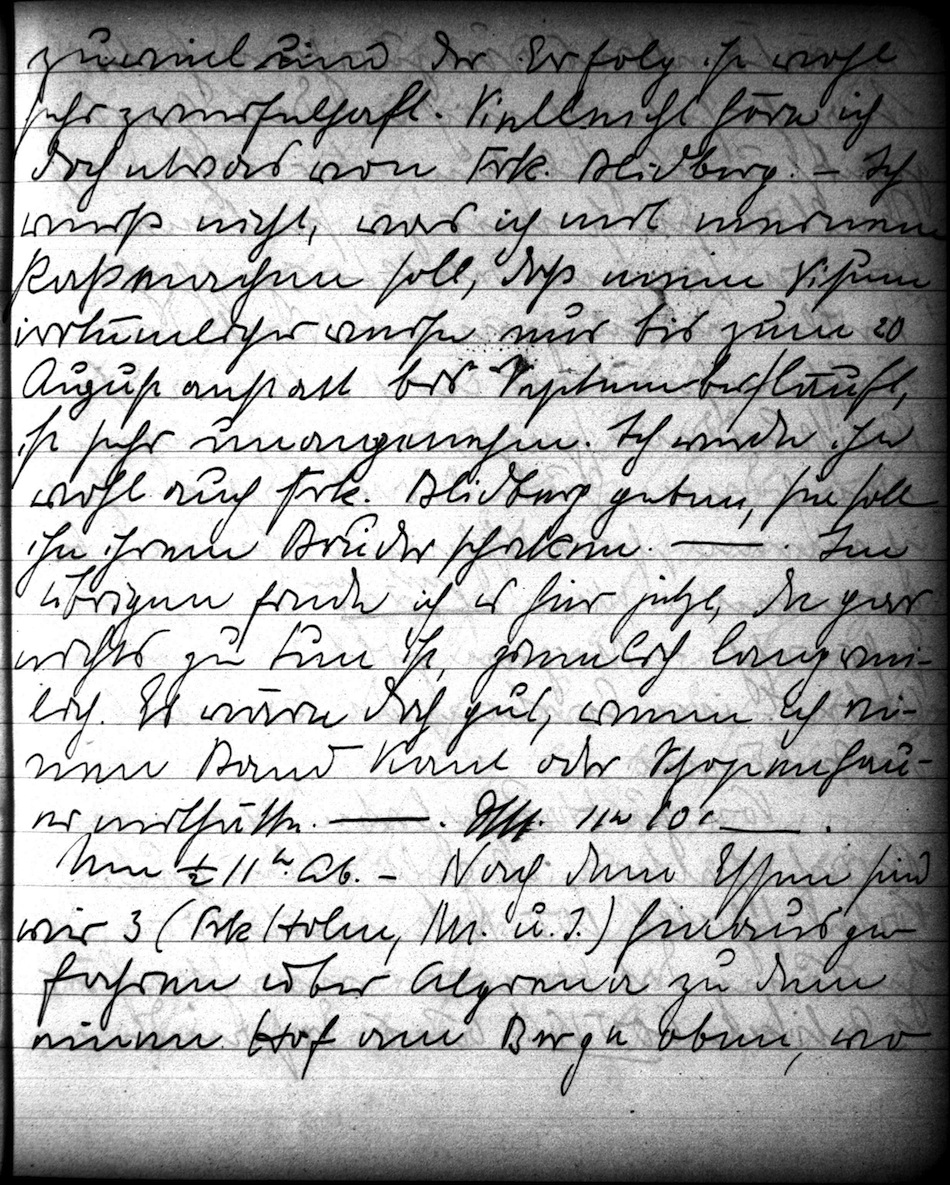 zuviel sind der Erfolg ist wohl
sehr zweifelhaft. Vielleicht höre ich
doch etwas von Frk. Blidberg. – Ich
weiß nicht, was ich mit meinem
Paß machen soll, daß mein Visum
irrtümlicher weise nur bis zum 20
August anstatt bis September läuft,
ist sehr unangenehm. Ich werde ihn
wohl auch Frk. Blidberg geben, sie soll
ihn ihrem Bruder schicken. —— . Im
übrigen finde ich es hier jetzt, da gar
nichts zu tun ist, ziemlich langwei-
lich. Es wäre doch gut, wenn ich ei-
nen Band Kant oder Schopenhau-
er mithätte. —— . 11 10 —— .
Um ½ 11 h. Ab. – Nach dem Essen sind
wir 3 (Frk Holm, M. u. I.) hinausge-
fahren über Algrena zu dem
einen Hof am Berge oben, wo